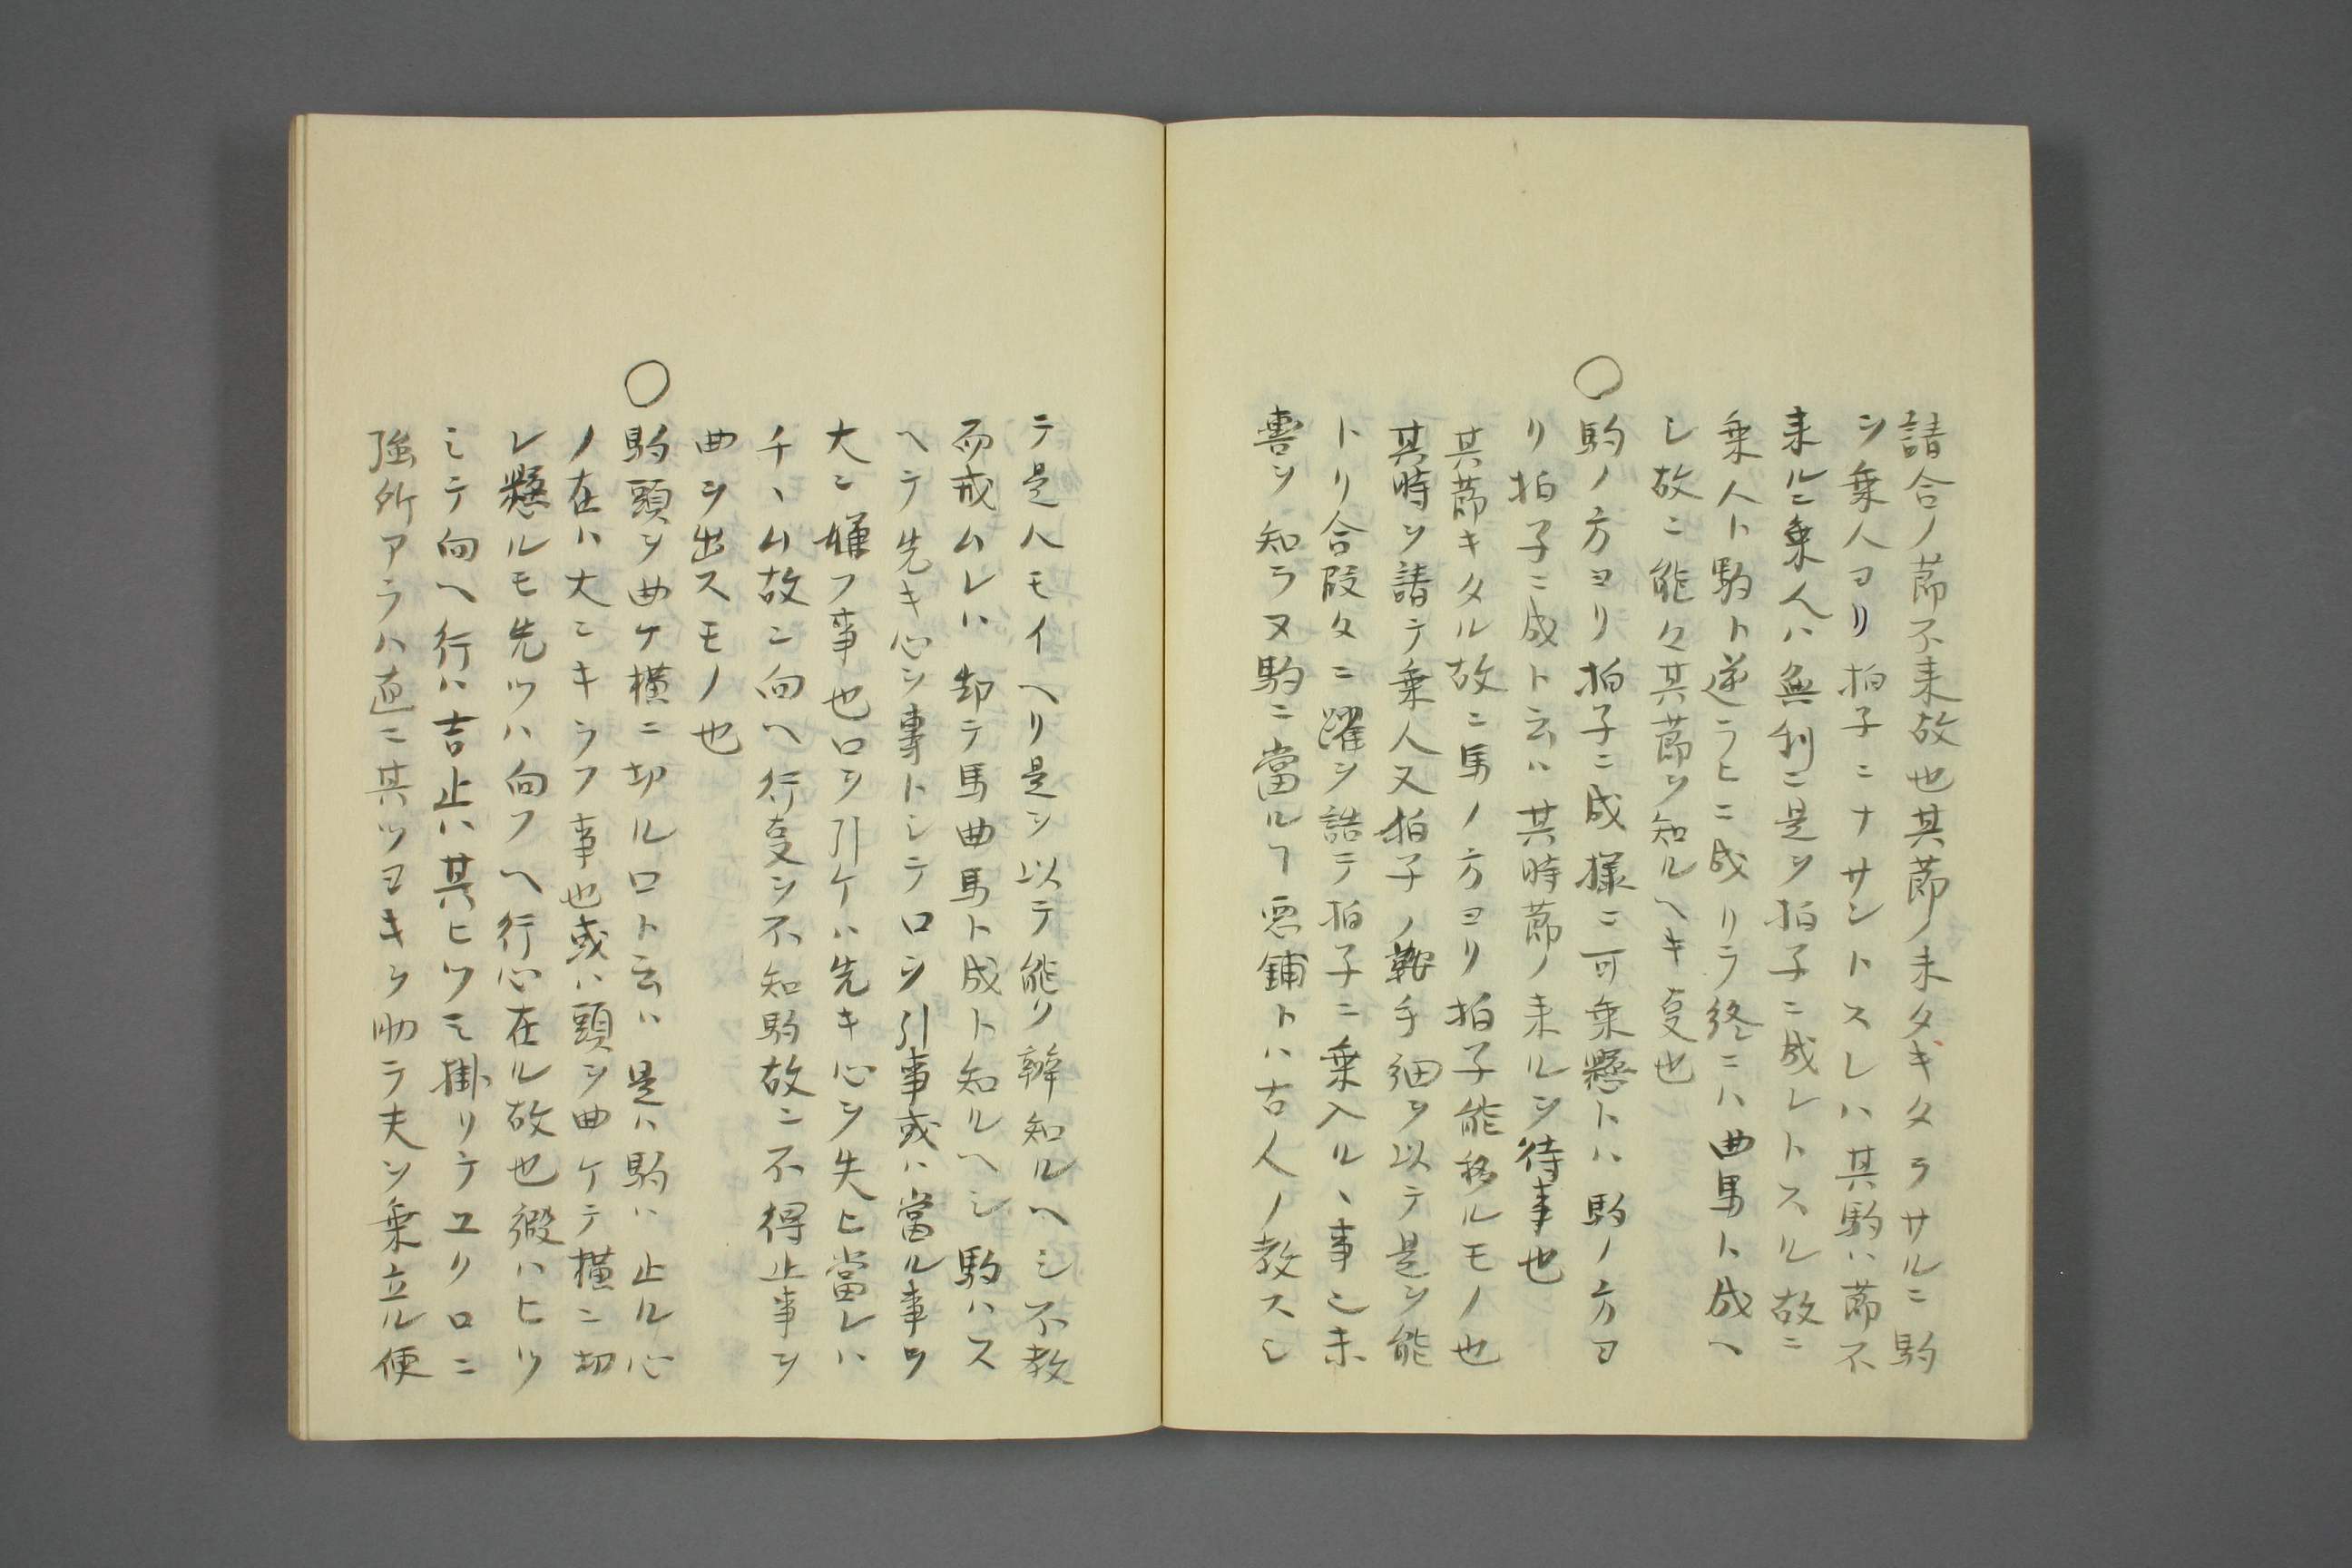 請合ノ節不来故也其節ノ未タキタラサルニ駒
ヲ乗人ヨリ拍子ニナサントスレハ其駒ハ節不
来ルニ乗人ハ無利ニ是ヲ拍子ニ成レトスル故ニ
乗人ト駒ト逆ラヒニ成リラ終ニハ曲馬ト成ヘ
シ故ニ能々其節ヲ知ルヘキ叓也
○駒ノ方ヨリ拍子ニ成様ニ可乗懸トハ駒ノ方ヨ
リ拍子ニ成ト云ハ其時節ノ来ルヲ待事也
其節キタル故ニ馬ノ方ヨリ拍子能移ルモノ也
其時ヲ請テ乗人又拍子ノ鞍手綱ヲ以テ是ヲ能
トリ合段々ニ躍ヲ詰テ拍子ニ乗入ルヽ事也未
書ヲ知ラヌ駒ニ當ルヿ悪鋪トハ古人ノ教スシ
テ是ハモイヘリ是ヲ以テ能ク辨知ルヘシ不教
而戒ムレハ却テ馬曲馬ト成ト知ルヘシ駒ハス
ヘテ先キ心ヲ專トシテ口ヲ引事或ハ當ル事ヲ
大ニ嫌フ事也口ヲ引ケハ先キ心ヲ失ヒ當レハ
チヽム故ニ向ヘ行叓ヲ不知駒故ニ不得止事ヲ
曲ヲ出スモノ也
○駒頭ヲ曲ケ横ニ切ルロト云ハ是ハ駒ハ止ル心
ノ在ハ大ニキラフ事也或ハ頭ヲ曲ケテ横ニ切
レ懸ルモ先ツハ向フヘ行心在ル故也緞ハヒツ
ミテ向ヘ行ハ吉止ハ其ヒツミ掛リテユク口ニ
強所アラハ直ニ其ツヨキヲ助テ夫ヲ乗立ル便